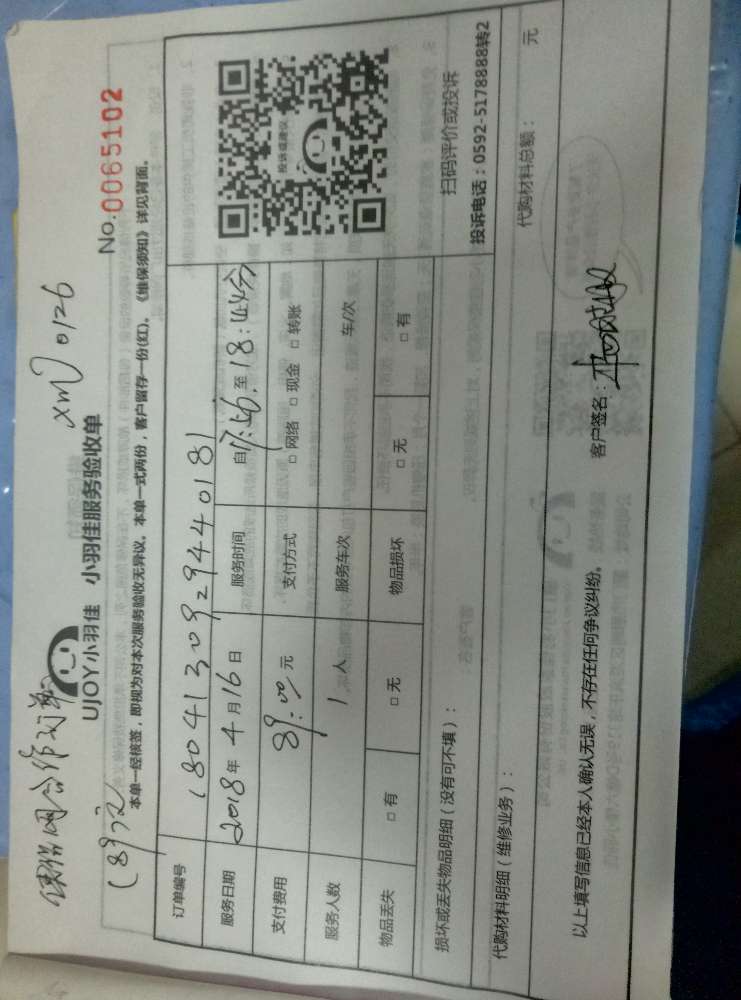 xm 0126
合作
(89元)
UJOY小羽佳 小羽佳服务验收单
No.0065102
本单一经核签，即视为对本次服务验收无异议。本单一式两份，客户留存一份(红)。《维保须知》详见背面。
订单编号 180413092944018
服务日期 2018年4月16日 服务时间 自17:56 至18:44分
支付费用 89.00元 支付方式 □ 网络 □ 现金 □ 转账
服务人数 1 人 服务车次 车/次
物品丢失 □ 有 □ 无 物品损坏 □ 无 □ 有
投诉或建议
扫码评价或投诉
投诉电话：0592-5178888转2
损坏或丢失物品明细（没有可不填）：
代购材料明细（维修业务）： 代购材料总额： 元
以上填写信息已经本人确认无误，不存在任何争议纠纷。 客户签名：